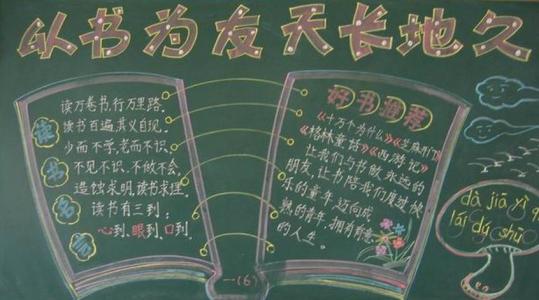 以书为友天长地久
读书名言
读万卷书,行万里路。
读书百遍,其义自现。
少而不学,老而不识。
不见不识,不做不会。
造蚀求明,读书求理。
读书有三到:
心到.眼到.口到.
好书推荐
《十万个为什么》《芝麻开门》
《格林童话》《西游记》
让我们与书做永远的
朋友,让书陪我们度过快
乐的童年,迈向成
熟的青年,拥有有意
的人生。
一(6)
dà jiā yì q
lái dú shū